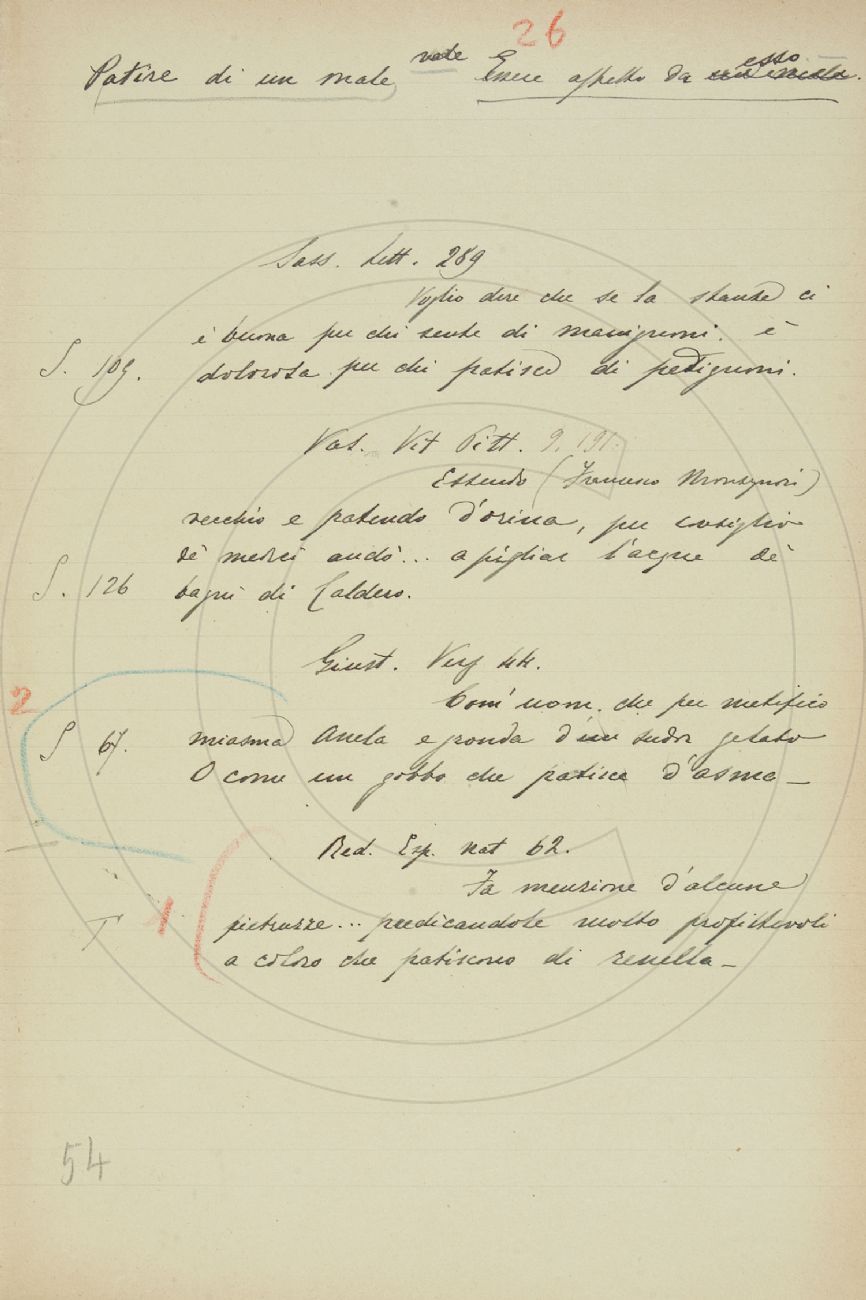 26
Patire di un male vale Essere affetto da esso.
Sass. Lett. 289
Voglio dire che se la stanza ci
è buona per chi sente di manignoni. è
S. 109. dolorosa per chi patisce di pedignoni.
Vas. Vit Pitt. 9. 191.
Essendo (Francesco Monsignori)
vecchio e patendo d'orina, per consiglio
de' medici andò... a pigliar l'acque de'
S. 126 bagni di Caldero.
Giust. Vers 44.
2 Com' uom. che per mefitico
S 67. miasma Anela e gronda d'un sudor gelato
O come un gobbo che patisce d'asma _
Red. Esp. nat 62.
Fa menzione d'alcune
T 1 pietruzze... predicandole molto profittevoli
a coloro che patiscono di renella _
54